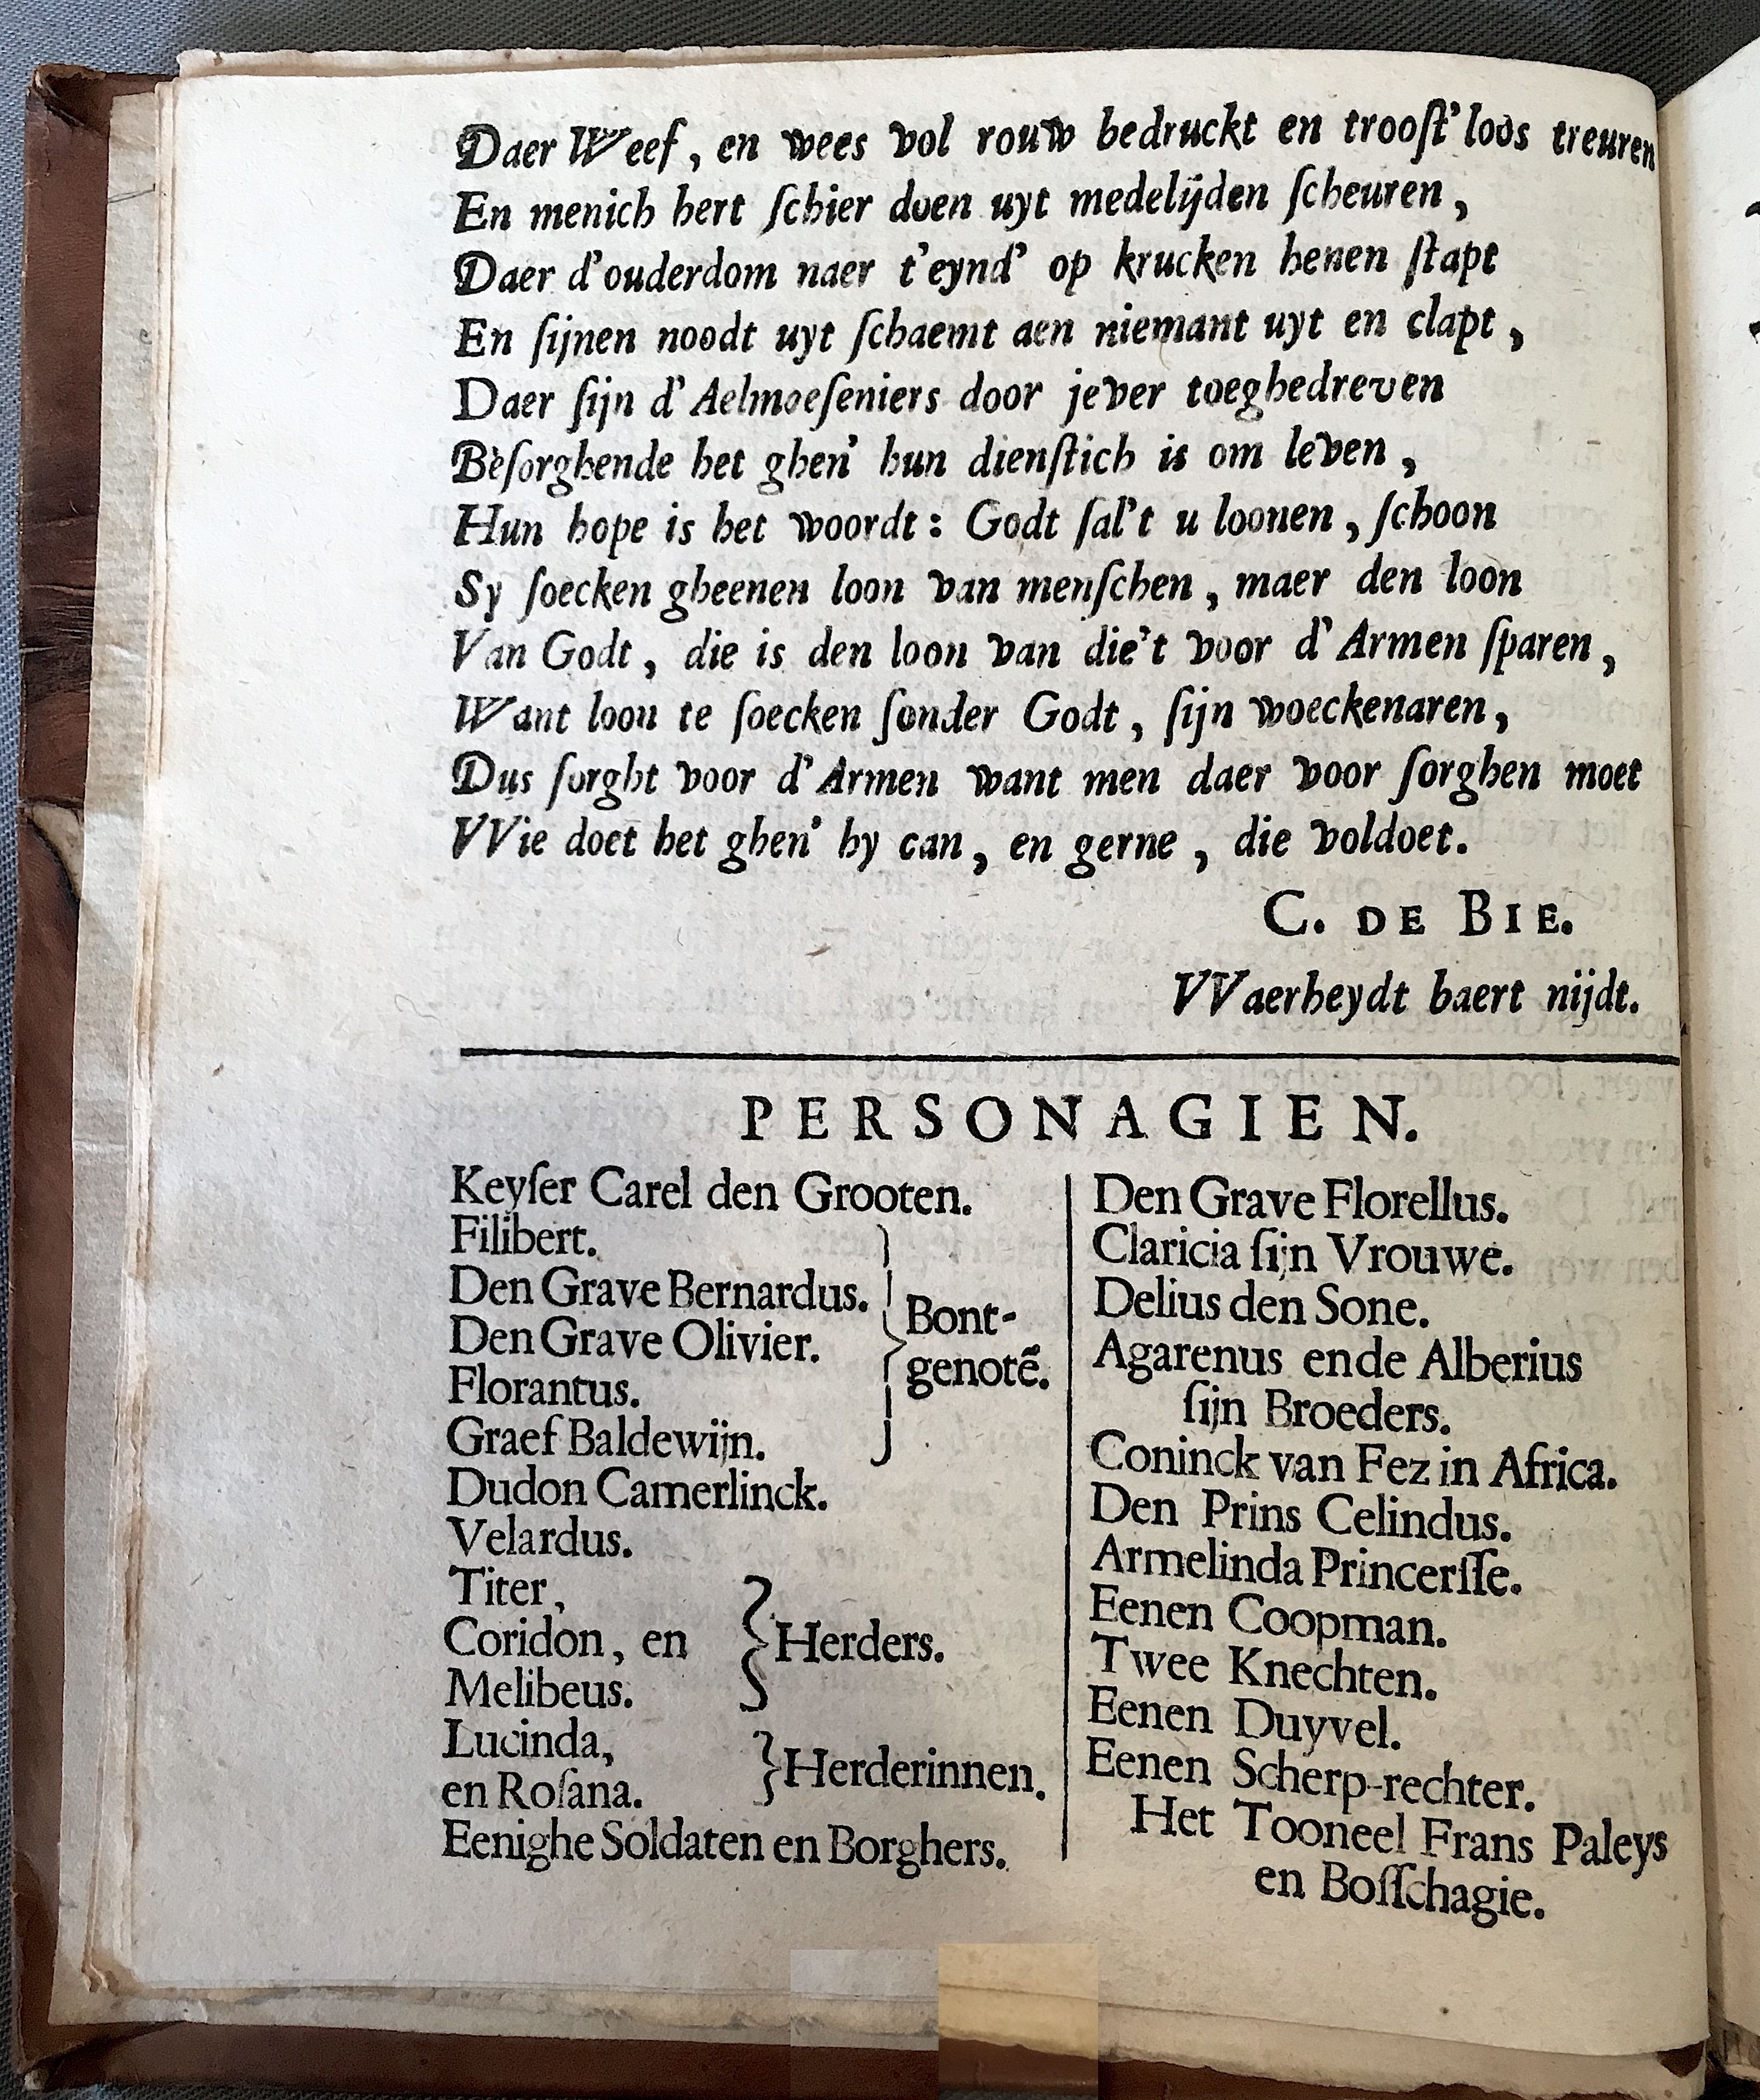 Daer Weeſ, en wees vol rouw bedruckt en trooſt'loos treuren
En menich hert ſchier doen uyt medelijden ſcheuren,
Daer d'ouderdom naer t'eynd' op krucken henen ſtapt
En ſijnen noodt uyt ſchaemt aen niemant uyt en clapt,
Daer ſijn d'Aelmoeſeniers door jever toeghedreven
Beſorghende het ghen' hun dienſtich is om leven,
Hun hope is het woordt: Godt ſal't u loonen, ſchoon
Sy ſoecken gheenen loon van menſchen, maer den loon
Van Godt, die is den loon van die't voor d'Armen ſparen,
Want loon te ſoecken ſonder Godt, ſijn woeckenaren,
Dus ſorght voor d'Armen want men daer voor ſorghen moet
VVie doet het ghen' hy can, en gerne, die voldoet.
C. DE BIE.
VVaerheydt baert nijdt.
PERSONAGIEN.
Keyſer Carel den Grooten.
Filibert.
Den Grave Bernardus.
Den Grave Olivier.
Florantus.
Graef Baldewijn.
Bont-
genotẽ.
Dudon Camerlinck.
Velardus.
Titer,
Coridon, en
Melibeus.
Herders.
Lucinda,
en Roſana.
Herderinnen.
Eenighe Soldaten en Borghers.
Den Grave Florellus.
Claricia ſijn Vrouwe.
Delius den Sone.
Agarenus ende Alberius
ſijn Broeders.
Coninck van Fez in Africa.
Den Prins Celindus.
Armelinda Princerſſe.
Eenen Coopman.
Twee Knechten.
Eenen Duyvel.
Eenen Scherp-rechter.
Het Tooneel Frans Paleys
en Boſſchagie.